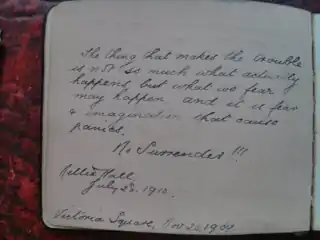 The thing that makes the trouble
is not so much what actually
happens but what we fear
may happen and it is fear
& imagination that cause
panics.
No Surrender!!!
Nellie Hall
July 23. 1910.
Victoria Square, Nov 22 1909